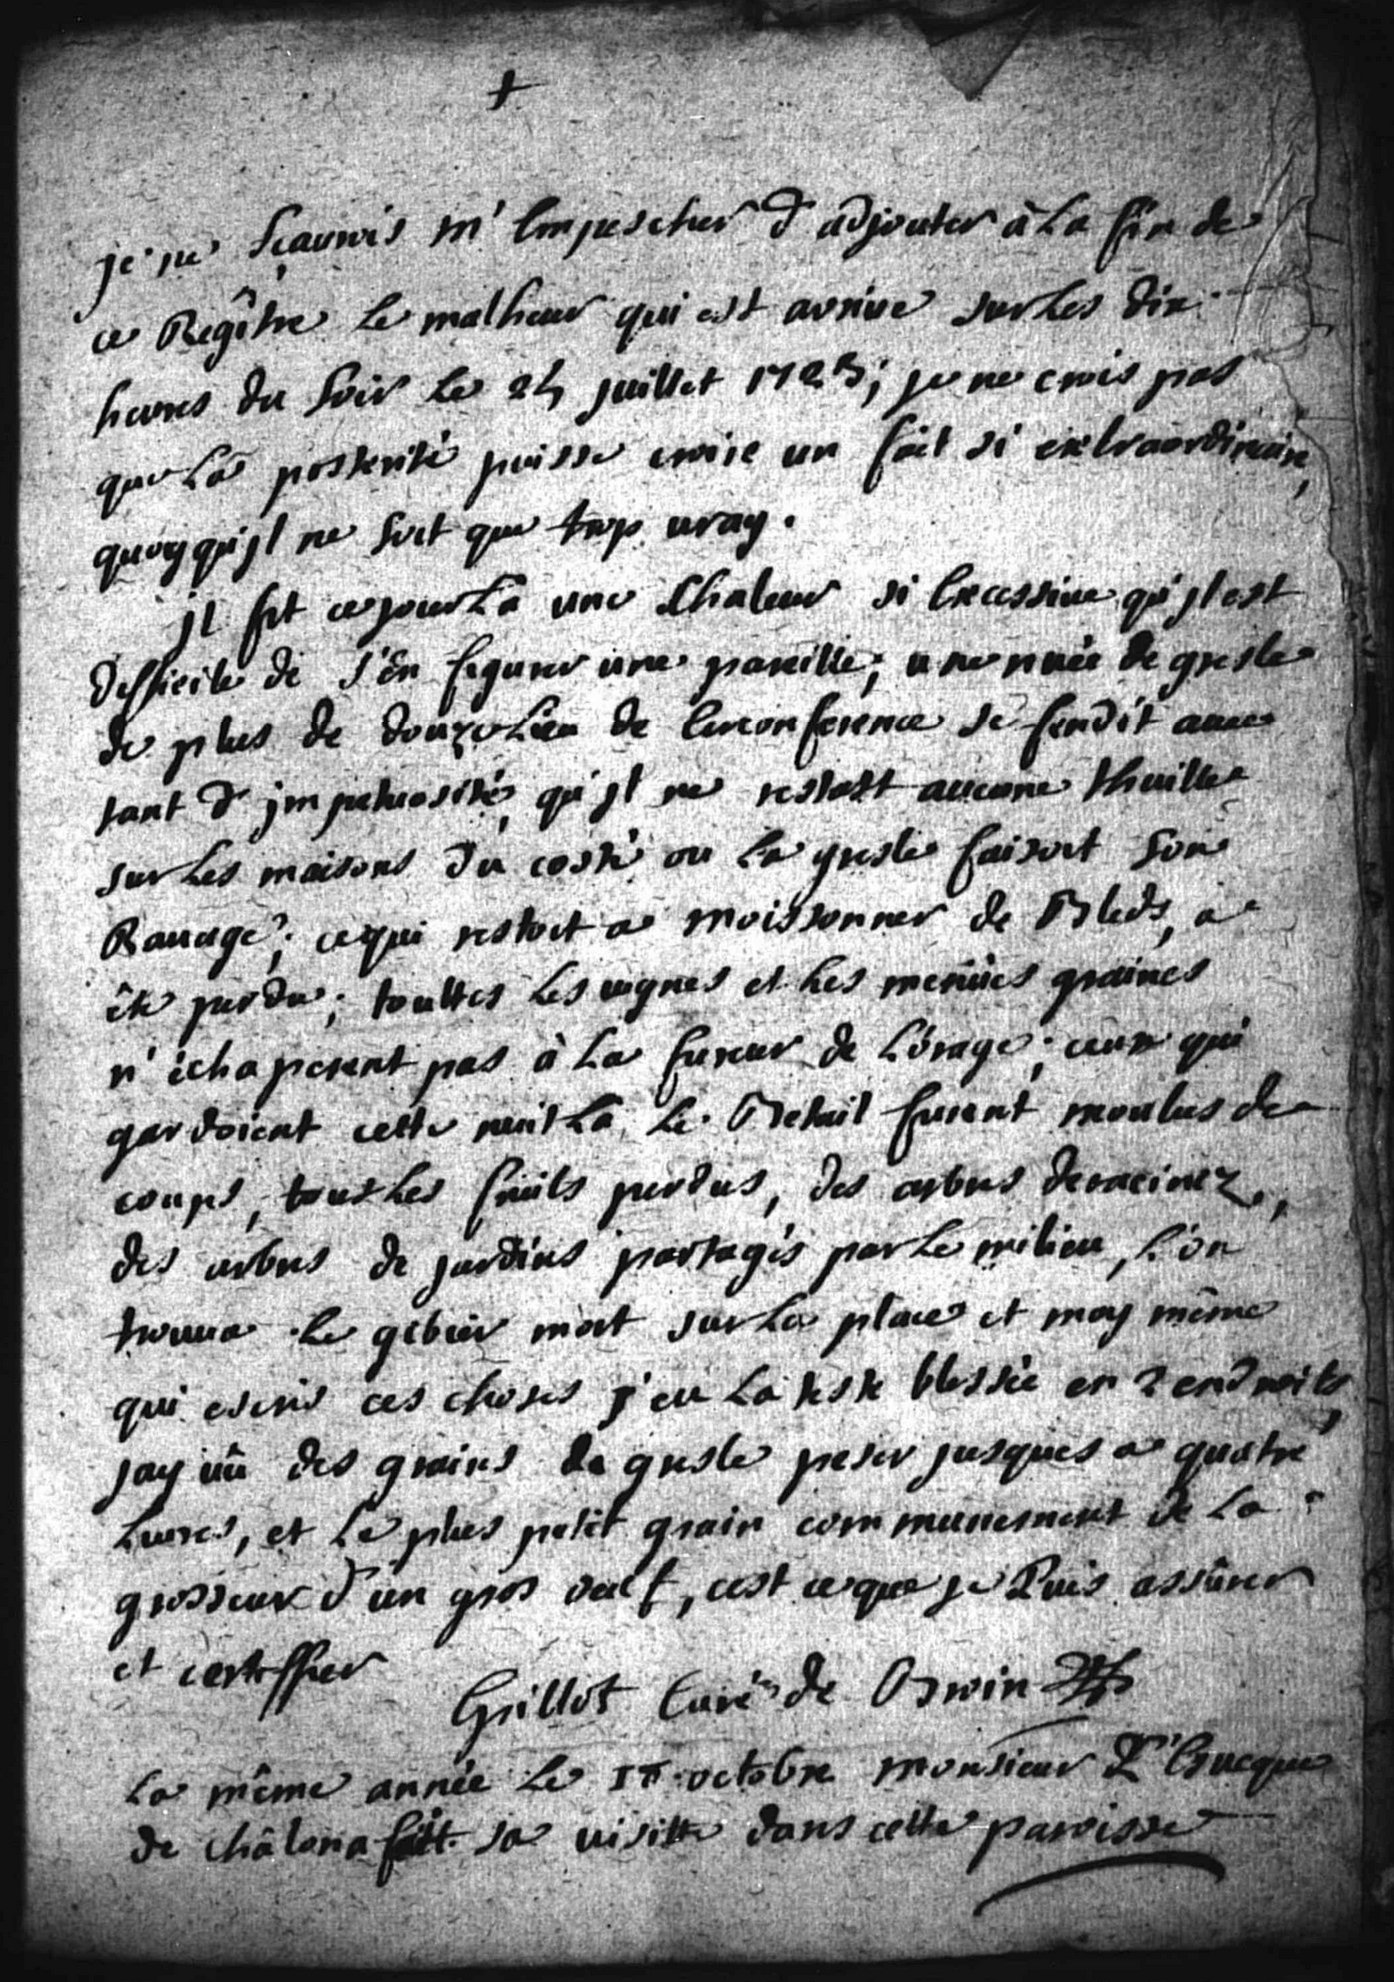 +
je ne sçaurois m'empescher d'adjouter à la fin de
ce Regître le malheur qui est arrivé sur les dix
heures du soir le 24 juillet 1725; je ne crois pas
que la posterité puisse croire un fait si extraordinaire,
quoyqu'jl ne soit que trop vray.
jl fit ce jour la une chaleur si excessive qu'jl est
difficile de s'en figurer une pareille; une nuée de gresle
de plus de douze lieu de circonference se fendit avec
tant d'jmpetuosité, qu'jl ne restast aucune thuille
sur les maisons du costé ou la gresle faisoit son
Ravage; ce qui restoit a moissonner de Bleds, a
êté perdu; touttes les vignes et les menües graines
n'échaperent pas à la fureur de l'orage; ceux qui
gardoient cette nuit la le Betail furent moulus de
coups, tous les fruits perdus, des arbres deracinez,
des arbres de jardins partagés par le milieu, l'on
trouva le gibier mort sur la place et moy même
qui escris ces choses j'eu la teste blessée en 2 endroits,
jay vû des grains de gresle peser jusques a quatre
livres, et le plus petit grain communement de la
grosseur d'un gros oeuf, cest ce que je Puis assûrer
et certiffier
Grillot Curé de Broin
La même année le octobre monsieur L'Evecque
de châlon a fait sa visitte dans cette paroisse